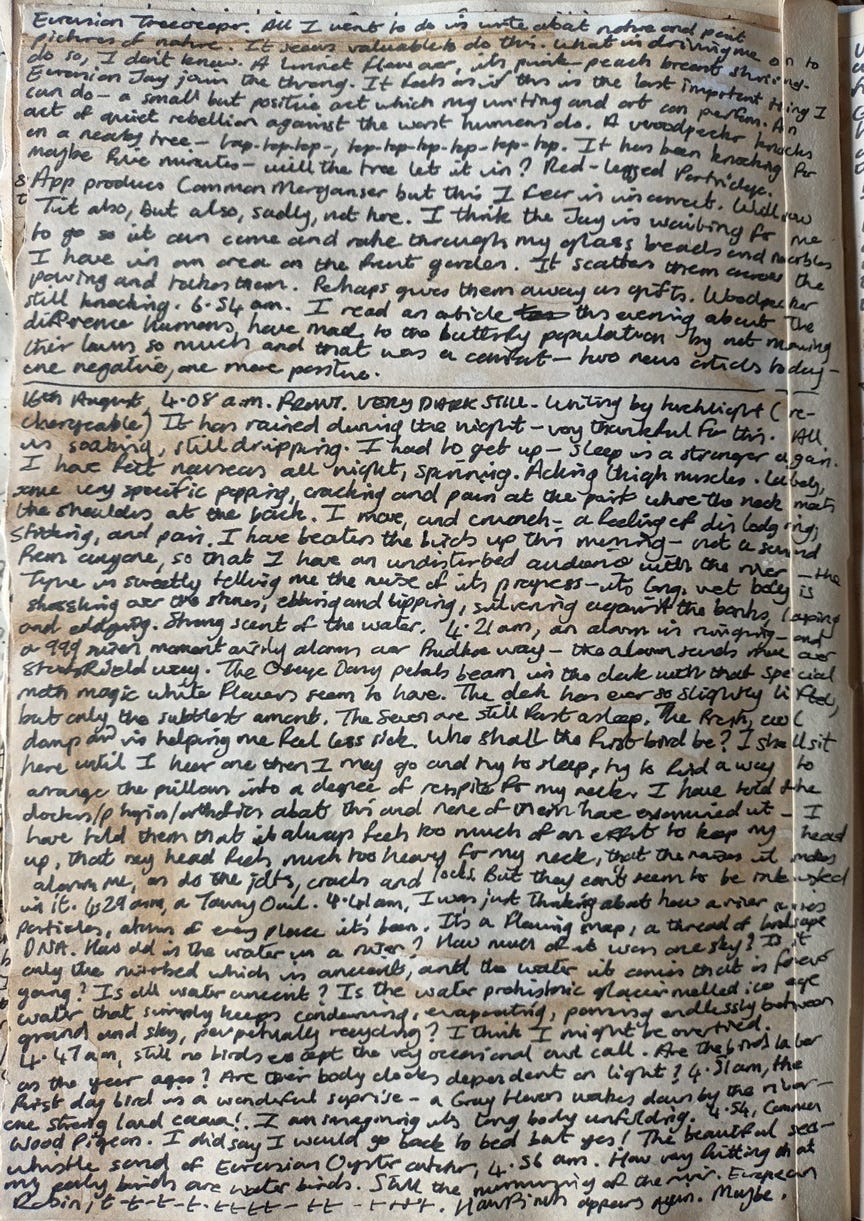 Eurasian Treecreeper. All I want to do is write about nature and paint
pictures of nature. It seems valuable to do this. What is driving me on to
do so, I don't know. A Linnet flew over, its punk-peach breast shining.
Eurasian Jay joins the throng. It feels as if this is the last important thing I
can do - a small but positive act which my writing and art can perform. An
act of quiet rebellion against the worst humans do. A woodpecker knocks
on a nearby tree - tap-top-top-, top-top-top-top-top-top. It has been knocking for
maybe five minutes - will the tree let it in? Red-legged Partridge.
App produces Common Merganser but this I fear is incorrect. Willow
Tit also, but also, sadly, not here. I think the Jay is waiting for me
to go so it can come and rake through my glass beads and marbles
I have in an area on the front garden. It scatters them across the
paving and takes them. Perhaps gives them away as gifts. Woodpecker
still knocking. 6.54 am. I read an article this evening about the
difference humans, have made to the butterfly population by not mowing
their lawns so much and that was a comfort - two news articles today -
one negative, one more positive.
16th August, 4.08 a.m. FRONT. VERY DARK STILL. Writing by torchlight (re-
chargeable) It has rained during the night - very thankful for this. All
is soaking, still dripping. I had to get up - sleep is a stranger again.
I have felt nauseas all night, spinning. Aching thigh muscles. Lately,
some very specific popping, cracking and pain at the point where the neck meets
the shoulders at the back. I move, and crunch - a feeling of dislodging,
sticking, and pain. I have beaten the birds up this morning - not a sound
from anyone, so that I have an undisturbed audience with the river - the
Tyne is sweetly telling me the news of its progress - its long, wet body is
shooshing over the stones, ebbing and tipping, silvering against the banks, lapping
and eddying. Strong scent of the water. 4.21am, an alarm is ringing - and
a 999 siren momentarily alarms over Prudhoe way - the alarm sounds more over
Stocksfield way. The Oxeye Daisy petals beam in the dark with that special
moth magic white flowers seem to have. The dark has ever so slightly lifted,
but only the subtlest amount. The Seven are still fast asleep. The fresh, cool
damp air is helping me feel less sick. Who shall the first bird be? I shall sit
here until I hear one then I may go and try to sleep, try to find a way to
arrange the pillows into a degree of respite for my neck. I have told the
doctors/physios/orthotics about this and none of them have examined it - I
have told them that it always feels too much of an effort to keep my head
up, that my head feels much too heavy for my neck, that the noises it makes
alarm me, as do the jolts, cracks and locks. But they can't seem to be interested
in it. 4.29am, a Tawny Owl. 4.41am, I was just thinking about how a river carries
particles, atoms of every place it's been. It's a flowing map, a thread of landscape
DNA. How old is the water in a river? How much of it was once sky? Is it
only the riverbed which is ancient, and the water it carries that is forever
young? Is all water ancient? Is the water prehistoric glacier melted ice age
water that simply keeps condensing, evaporating, pouring endlessly between
ground and sky, perpetually recycling? I think I might be overtired.
4.47am, still no birds except the very occasional owl call. Are the birds later
as the year ages? Are their body clocks dependent on light? 4.51am, the
first day bird is a wonderful suprise - a Grey Heron wakes down by the river -
one strong loud caaaa!. I am imagining its long body unfolding. 4.54, Common
Wood Pigeon. I did say I would go back to bed but yes! The beautiful sea-
whistle sound of Eurasian Oystercatcher, 4.56 am. How very fitting that
my early birds are water birds. Still the murmuring of the river. European
Robin, t-t-t-t- tttt- tt -tttt. Hawfinch appears again. Maybe.